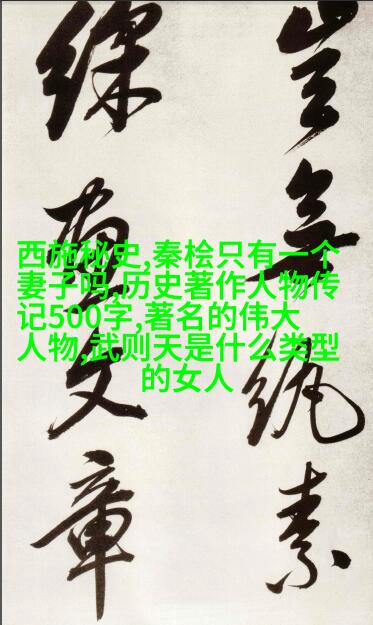 豈無紈素
綵畫文章
西施秘史,秦桧只有一个
妻子吗,历史著作人物传
记500字,著名的伟大
人物,武则天是什么类型
的女人